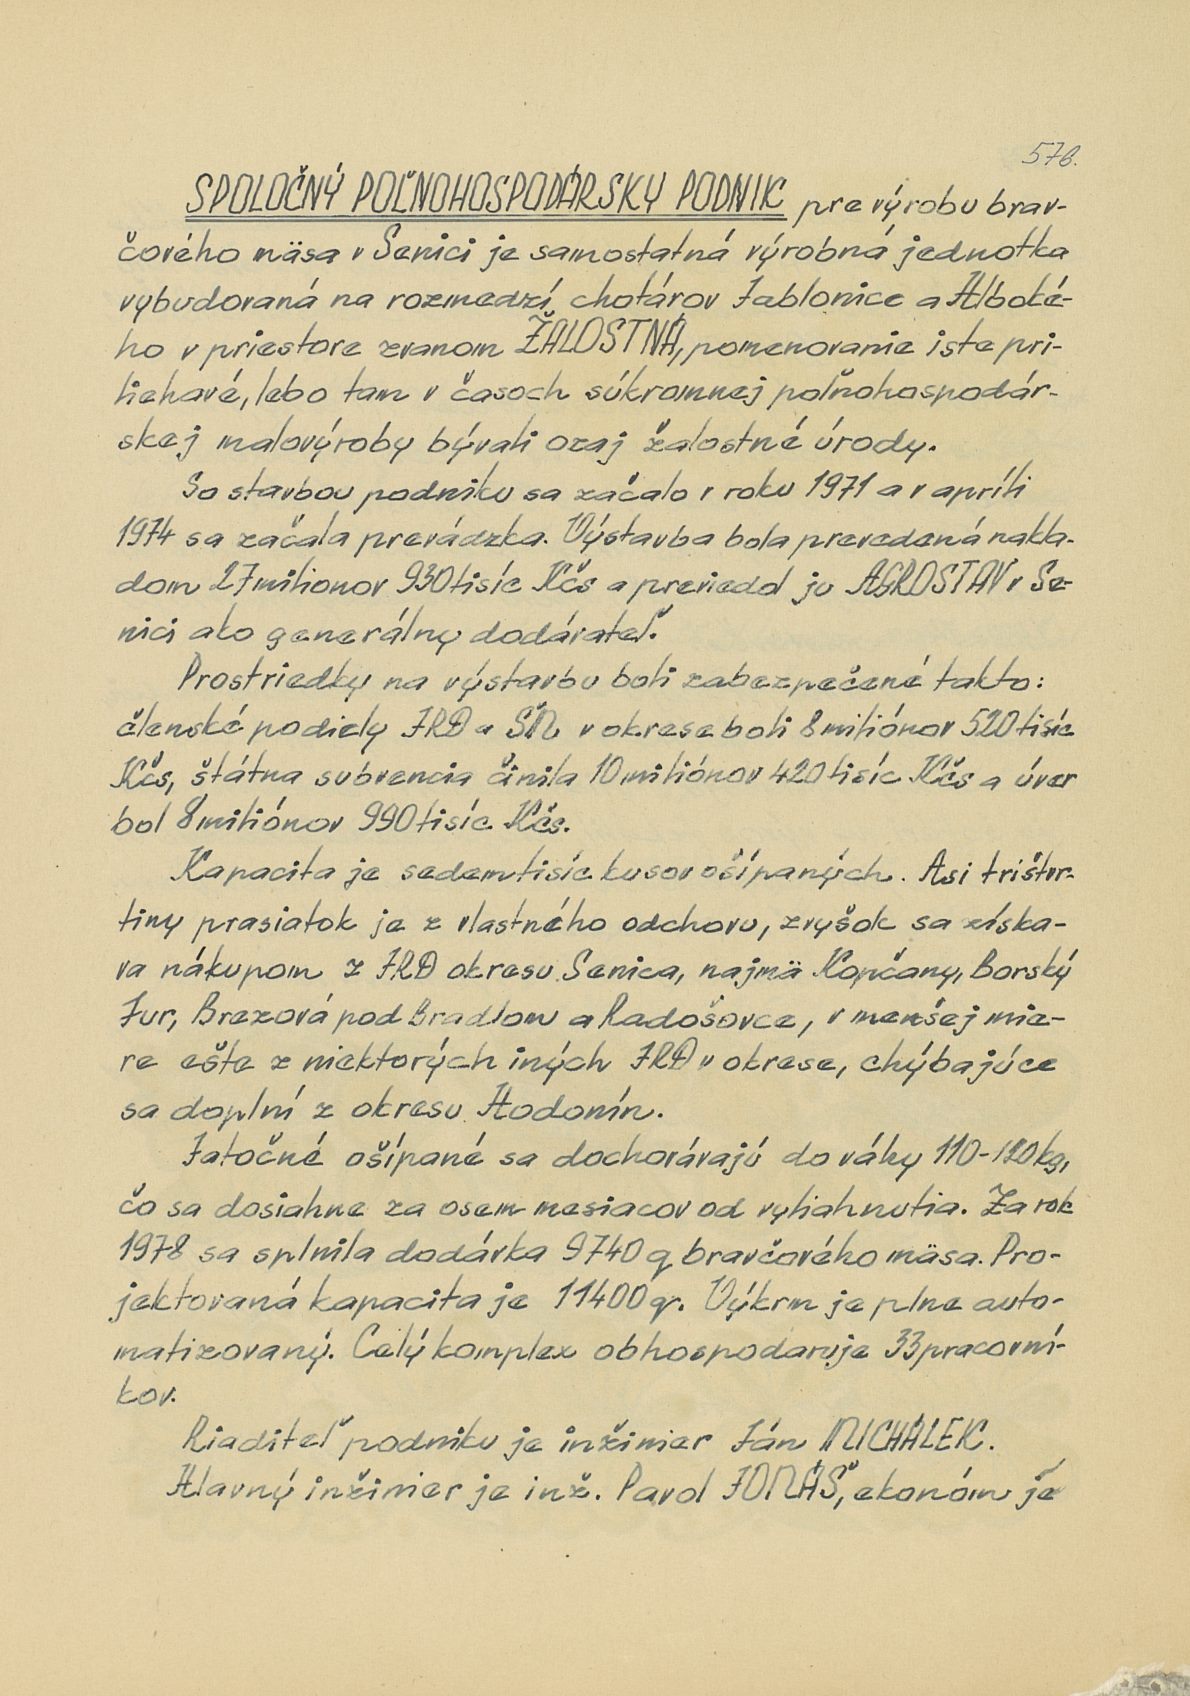 576.
SPOLOČNÝ POĽNOHOSPODÁRSKY PODNIK pre výrobu brav-
čového mäsa v Senici je samostatná výrobná jednotka
vybudovaná na rozmedzí chotárov Jablonice a Hlboké-
ho v priestore zvanom ŽALOSTNÁ, pomenovanie iste pri-
liehavé, lebo tam v časoch súkromnej poľnohospodár-
skej malovýroby bývali ozaj žalostné úrody.
So stavbou podniku sa začalo v roku 1971 a v apríli
1974 sa začala prevádzka. Výstavba bola prevedená nákla-
dom 27 milionov 930 tisíc Kčs a previedol ju AGROSTAV v Se-
nici ako generálny dodávateľ.
Prostriedky na výstavbu boli zabezpečené takto:
členské podiely JRD a ŠM v okrese boli 8 miliónov 520 tisíc
Kčs, štátna subvencia činila 10 miliónov 420 tisíc Kčs a úver
bol 8 miliónov 990 tisíc Kčs.
Kapacita je sedemtisíc kusov ošípaných. Asi trištvr-
tiny prasiatok je z vlastného odchovu, zvyšok sa získa-
va nákupom z JRD okresu Senica, najmä Kopčany, Borský
Jur, Brezová pod Bradlom a Radošovce, v menšej mie-
re ešte z niektorých iných JRD v okrese, chýbajúce
sa doplní z okresu Hodonín.
Jatočné ošípané sa dochovávajú do váhy 110-120 kg,
čo sa dosiahne za osem mesiacov od vyliahnutia. Za rok
1978 sa splnila dodávka 9740 q bravčového mäsa. Pro-
jektovaná kapacita je 11400 q. Výkrm je plne auto-
matizovaný. Celý komplex obhospodaruje 33 pracovní-
kov.
Riaditeľ podniku je inžinier Ján MICHÁLEK.
Hlavný inžinier je inž. Pavol JONÁŠ, ekonóm je